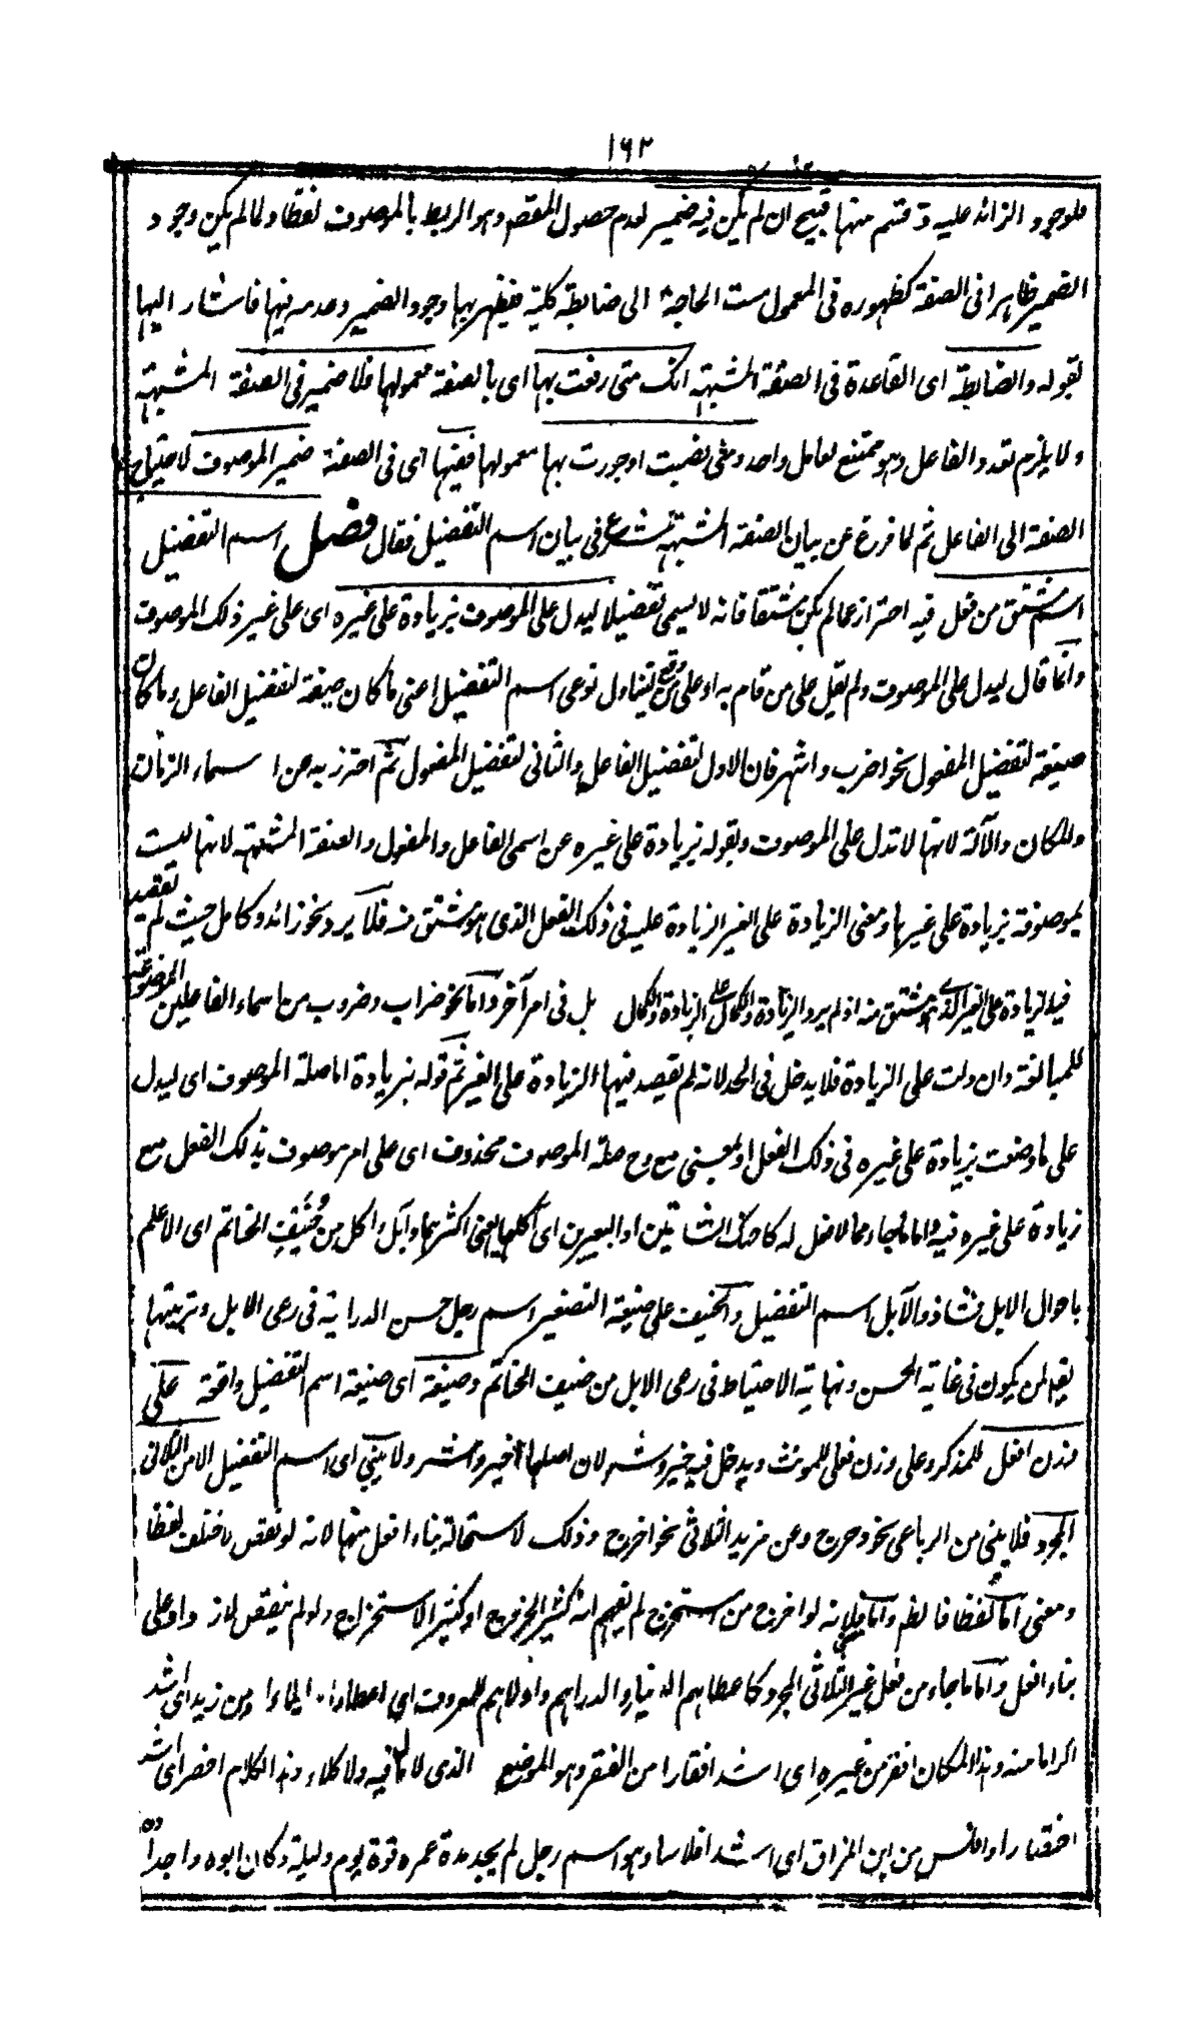 ١٦٢
للوجود الزائد عليه وقسم منها قبيح ان لم يكن فيه ضمير لعدم حصول المقصود وهو الربط بالموصوف لفظا ولما لم يكن وجود
الضمير ظاهرا فى الصفة كظهوره فى المعمول مست الحاجة الى ضابطة كلية فيظهر بها وجود الضمير وعدمه فيها فاشار اليها
بقوله والضابطة اى القاعدة فى الصفة المشبهة انك متى رفعت بها اى بالصفة معمولها فلا ضمير فى الصفة المشبهة
ولا يلزم تعدد الفاعل وهو ممتنع لعامل واحد ومتى نصبت او جررت بها معمولها ففيها اى فى الصفة ضمير الموصوف لاحتياج
الصفة الى الفاعل ثم لما فرغ عن بيان الصفة المشبهة شرع فى بيان اسم التفضيل فقال فصل اسم التفضيل
اسم مشتق من فعل فيه احتراز عما لم يكن مشتقا فانه لا يسمى تفضيلا ليدل على الموصوف بزيادة على غيره اى على غير ذلك الموصوف
وانما قال ليدل على الموصوف ولم يقل على من قام به او على من وقع ليتناول نوعى اسم التفضيل اعنى ما كان صيغة لتفضيل الفاعل وما كان
صيغة لتفضيل المفعول نحو اضرب واشهر فان الاول لتفضيل الفاعل والثانى لتفضيل المفعول ثم احترز به عن اسماء الزمان
والمكان والآلة لانها لا تدل على الموصوف وبقوله بزيادة على غيره عن اسمى الفاعل والمفعول والصفة المشبهة لانها ليست
بموصوفة بزيادة على غيرها ومعنى الزيادة على الغير الزيادة عليه فى ذلك الفعل الذى هو مشتق منه فلا يرد نحو زائد وكامل حيث لم تقصد
فيه الزيادة على الغير الذى هو مشتق منه اذ لم يرد الزيادة والكمال على الزيادة والكمال بل فى امر آخر واما نحو ضراب وضروب من اسماء الفاعلين الموضوعة
للمبالغة وان دلت على الزيادة فلا يدخل فى الحد لانه لم يقصد فيها الزيادة على الغير ثم قوله بزيادة اما صلة الموصوف اى ليدل
على ما وصفت بزيادة على غيره فى ذلك الفعل او بمعنى مع وح صلة الموصوف محذوف اى على امر موصوف بذلك الفعل مع
زيادة على غيره فيه واما ما جاء مما لا فعل له كاحنك الشاتين او البعيرين اى آكلهما يعنى اكثرهما وآبل واكل من حنيف الحناتم اى الاعلم
باحوال الابل فشاذ والآبل اسم التفضيل والحنيف على صيغة التصغير اسم رجل حسن الدراية فى رعى الابل وتربيتها
يقع لمن يكون فى غاية الحسن ونهاية الاحتياط فى رعى الابل من حنيف الحناتم وصيغة اى صيغة اسم التفضيل واقعة على
وزن افعل للمذكر وعلى وزن فعلى للمونث ويدخل فيه خير وشر لان اصلهما اخير واشر ولا يبنى اى اسم التفضيل الا من الثلاثى
المجرد فلا يبنى من الرباعى نحو دحرج وعن مزيد الثلاثى نحو اخرج وذلك لاستحالة بناء افعل منها لانه لو نقص لاختلف لفظا
ومعنى اما لفظا فظاهر واما معنى فلانه لو اخرج من استخرج لم يفهم انه كثير الخروج او كثير الاستخراج ولو لم ينقص لزاد واو على
بناء افعل واما ما جاء من فعل غير الثلاثى المجرد كاعطاهم الدينار والدراهم واولاهم للمعروف اى اعطاء ايلاء ومن زيد اى اشد
اكراما منه وهذا المكان اقفر من غيره اى اشد اقفارا من القفر وهو الموضع الذى لا ماء فيه ولا كلاء وهذا الكلام اخصر اى اشد
اختصارا وافلس من ابن المزلق اى اشد افلاسا وهو اسم رجل لم يجد مدة عمره قوة يوم وليلة وكان ابوه واجداده